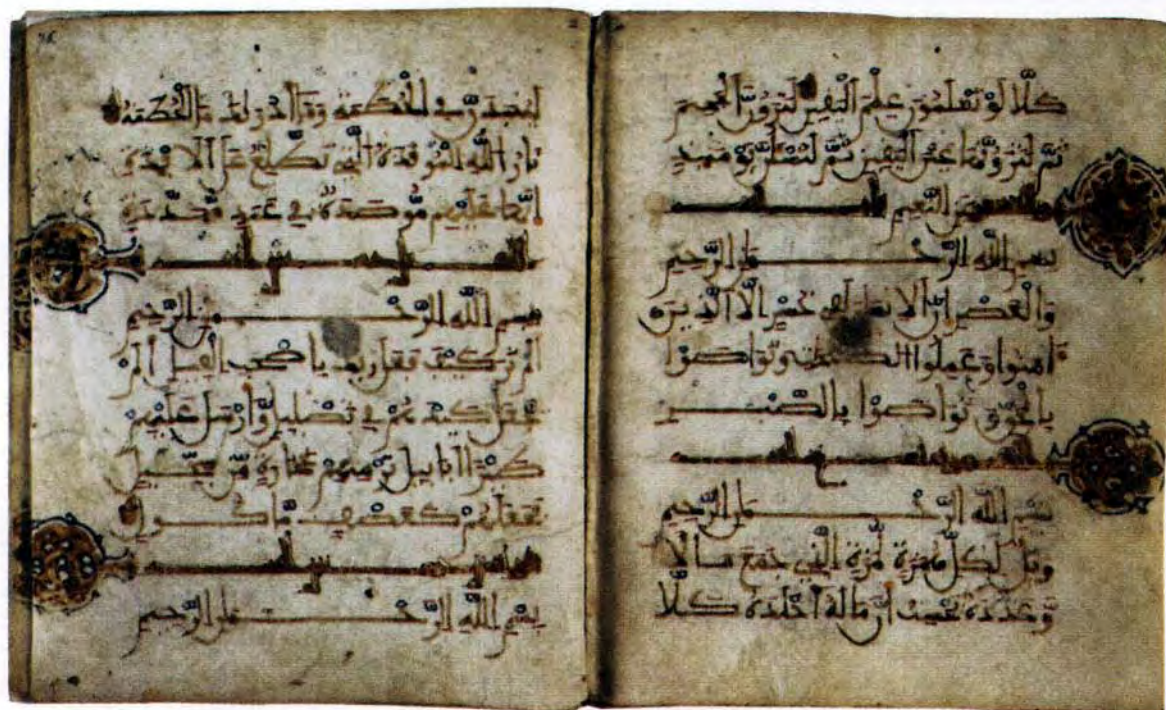 كَلَّا لَوْ تَعْلَمُونَ عِلْمَ الْيَقِينِ لَتَرَوُنَّ الْجَحِيمَ
ثُمَّ لَتَرَوُنَّهَا عَيْنَ الْيَقِينِ ثُمَّ لَتُسْئَلُنَّ يَوْمَئِذٍ
عَنِ النَّعِيمِ
بِسْمِ اللَّهِ الرَّحْمَنِ الرَّحِيمِ
وَالْعَصْرِ إِنَّ الْإِنْسَانَ لَفِي خُسْرٍ إِلَّا الَّذِينَ
آمَنُوا وَعَمِلُوا الصَّلِحَتِ وَتَوَاصَوْا
بِالْحَقِّ وَتَوَاصَوْا بِالصَّبْرِ
بِسْمِ اللَّهِ الرَّحْمَنِ الرَّحِيمِ
وَيْلٌ لِكُلِّ هُمَزَةٍ لُمَزَةٍ الَّذِي جَمَعَ مَالًا
وَعَدَّدَهُ يَحْسِبُ أَنَّ مَالَهُ أَخْلَدَهُ كَلَّا
لَيُنْبَذَنَّ فِي الْحُطَمَةِ وَمَا أَدْرَيكَ مَا الْحُطَمَةُ
نَارُ اللَّهِ الْمُوقَدَةُ الَّتِي تَطَّلِعُ عَلَى الْأَفْئِدَةِ
إِنَّهَا عَلَيْهِمْ مُوصَدَةٌ فِي عَمَدٍ مُمَدَّدَةٍ
بِسْمِ اللَّهِ الرَّحْمَنِ الرَّحِيمِ
أَلَمْ تَرَ كَيْفَ فَعَلَ رَبُّكَ بِأَصْحَبِ الْفِيلِ أَلَمْ
يَجْعَلْ كَيْدَهُمْ فِي تَضْلِيلٍ وَأَرْسَلَ عَلَيْهِمْ
طَيْرًا أَبَابِيلَ تَرْمِيهِمْ بِحِجَارَةٍ مِنْ سِجِّيلٍ
فَجَعَلَهُمْ كَعَصْفٍ مَأْكُولٍ
بِسْمِ اللَّهِ الرَّحْمَنِ الرَّحِيمِ